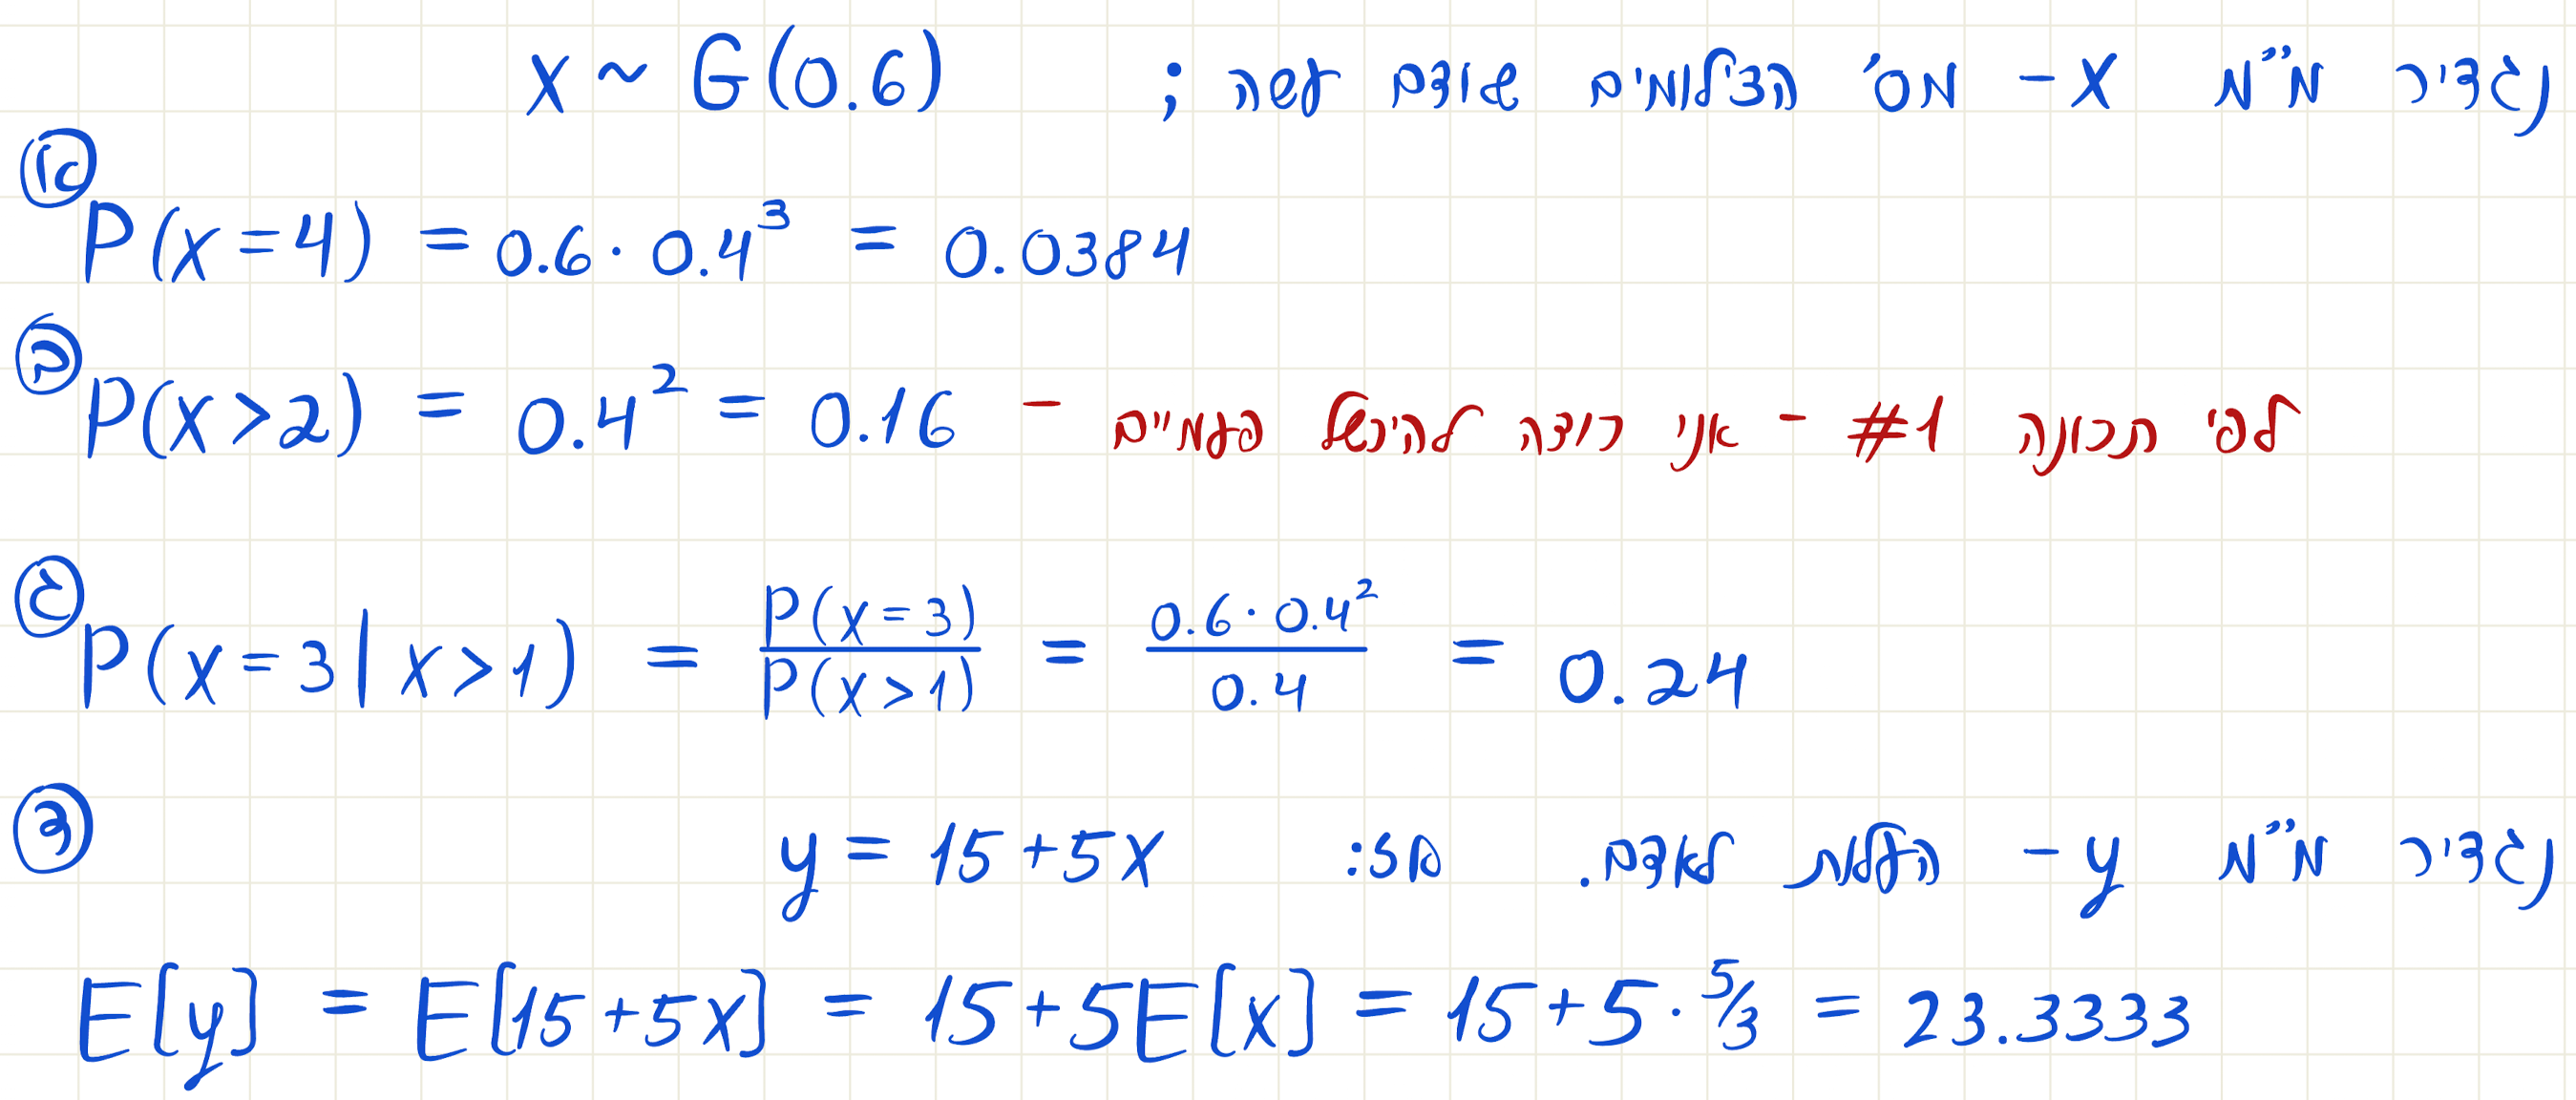 נגדיר מ״מ X - מס' הצילומים שאדם עשה ; X ~ G(0.6)
א
P(X=4) = 0.6 · 0.4³ = 0.0384
ב
P(X>2) = 0.4² = 0.16 - לפי תכונה #1 - אני רוצה להיכשל פעמיים
ג
P(X=3|X>1) = P(X=3)/P(X>1) = 0.6 · 0.4²/0.4 = 0.24
ד
נגדיר מ״מ y - העלות לאדם. אז: y = 15+5X
E[y] = E[15+5X] = 15+5E[X] = 15+5·5/3 = 23.3333